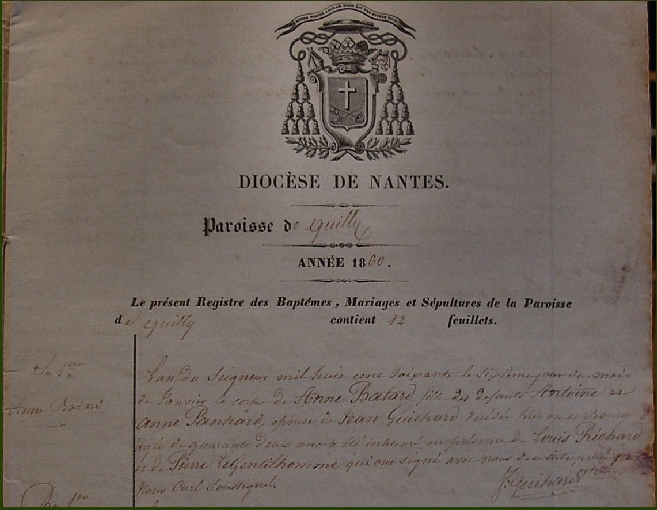 DIOCÈSE DE NANTES.
Paroisse de Quilly
ANNÉE 1860.
Le présent Registre des Baptêmes, Mariages et Sépultures de la Paroisse
de Quilly contient 12 feuillets.
Anne Batard
L'an du Seigneur mil huit cent soixante le septième jour du mois
de Janvier le corps de Anne Batard fille des defunts Antoine et
Anne Panhard, epouse de Jean Guichard décédée hier en ce bourg
agée de quarante deux ans a été inhumé en présence de Louis Richard
et de Pierre LeGentilhomme qui ont signé avec nous
Nous Curé Soussigné